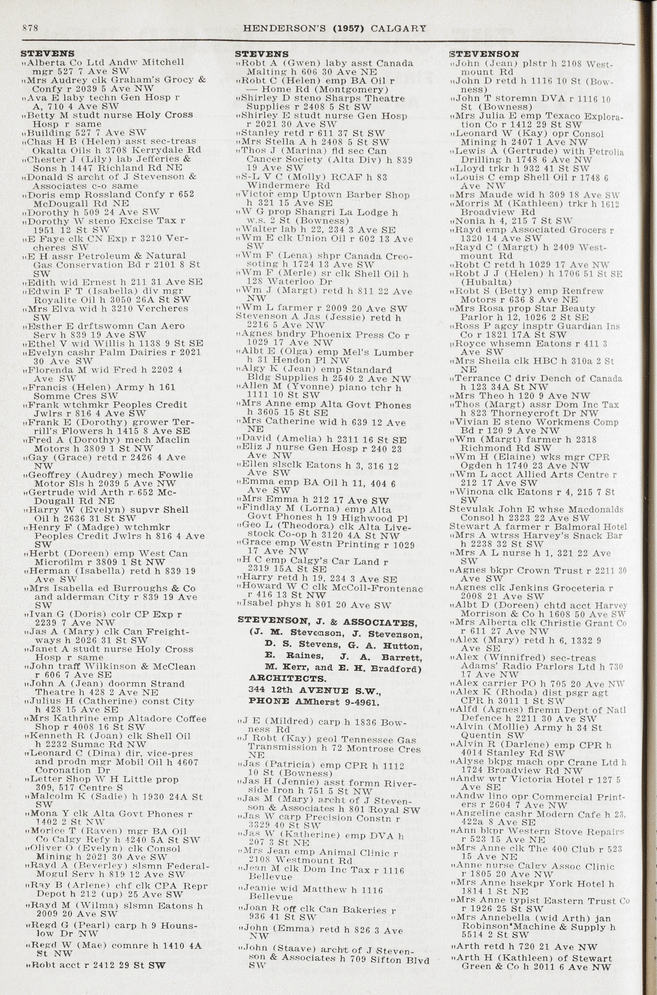 878 HENDERSON'S (1957) CALGARY
STEVENS
„Alberta Co Ltd Andw Mitchell
mgr 527 7 Ave SW
„Mrs Audrey clk Graham's Grocy &
Confy r 2039 5 Ave NW
„Ava E laby techn Gen Hosp r
A, 710 4 Ave SW
„Betty M studt nurse Holy Cross
Hosp r same
„Building 527 7 Ave SW
„Chas H B (Helen) asst sec-treas
Okalta Oils h 3708 Kerrydale Rd
„Chester J (Lily) lab Jefferies &
Sons h 1447 Richland Rd NE
„Donald S archt of J Stevenson &
Associates c-o same
„Doris emp Rossland Confy r 652
McDougall Rd NE
„Dorothy h 509 24 Ave SW
„Dorothy W steno Excise Tax r
1951 12 St SW
„E Faye clk CN Exp r 3210 Ver-
cheres SW
„E H assr Petroleum & Natural
Gas Conservation Bd r 2101 8 St
SW
„Edith wid Ernest h 211 31 Ave SE
„Edwin F T (Isabella) div mgr
Royalite Oil h 3050 26A St SW
„Mrs Elva wid h 3210 Vercheres
SW
„Esther E drftswomn Can Aero
Serv h 839 19 Ave SW
„Ethel V wid Willis h 1138 9 St SE
„Evelyn cashr Palm Dairies r 2021
30 Ave SW
„Florenda M wid Fred h 2202 4
Ave SW
„Francis (Helen) Army h 161
Somme Cres SW
„Frank wtchmkr Peoples Credit
Jwlrs r 816 4 Ave SW
„Frank E (Dorothy) grower Ter-
rill's Flowers h 1415 8 Ave SE
„Fred A (Dorothy) mech Maclin
Motors h 3809 1 St NW
„Gay (Grace) retd r 2426 4 Ave
NW
„Geoffrey (Audrey) mech Fowlie
Motor Sls h 2039 5 Ave NW
„Gertrude wid Arth r 652 Mc-
Dougall Rd NE
„Harry W (Evelyn) supvr Shell
Oil h 2636 31 St SW
„Henry F (Madge) wtchmkr
Peoples Credit Jwlrs h 816 4 Ave
SW
„Herbt (Doreen) emp West Can
Microfilm r 3809 1 St NW
„Herman (Isabella) retd h 839 19
Ave SW
„Mrs Isabella ed Burroughs & Co
and alderman City r 839 19 Ave
SW
„Ivan G (Doris) colr CP Exp r
2239 7 Ave NW
„Jas A (Mary) clk Can Freight-
ways h 2026 31 St SW
„Janet A studt nurse Holy Cross
Hosp r same
„John traff Wilkinson & McClean
r 606 7 Ave SE
„John A (Jean) doormn Strand
Theatre h 428 2 Ave NE
„Julius H (Catherine) const City
h 428 15 Ave SE
„Mrs Kathrine emp Altadore Coffee
Shop r 4008 16 St SW
„Kenneth R (Joan) clk Shell Oil
h 2232 Sumac Rd NW
„Leonard C (Dina) dir, vice-pres
and prodn mgr Mobil Oil h 4607
Coronation Dr
„Letter Shop W H Little prop
309, 517 Centre S
„Malcolm K (Sadie) h 1930 24A St
SW
„Mona Y clk Alta Govt Phones r
1402 2 St NW
„Morice T (Raven) mgr BA Oil
Co Calgy Refy h 4240 5A St SW
„Oliver O (Evelyn) clk Consol
Mining h 2021 30 Ave SW
„Rayd A (Beverley) slsmn Federal-
Mogul Serv h 819 12 Ave SW
„Ray B (Arlene) chf clk CPA Repr
Depot h 212 (up) 25 Ave SW
„Rayd M (Wilma) slsmn Eatons h
2009 20 Ave SW
„Regd G (Pearl) carp h 9 Houns-
low Dr NW
„Regd W (Mae) comnre h 1410 4A
St NW
„Robt acct r 2412 29 St SW
STEVENS
„Robt A (Gwen) laby asst Canada
Malting h 606 30 Ave NE
„Robt C (Helen) emp BA Oil r
— Home Rd (Montgomery)
„Shirley D steno Sharps Theatre
Supplies r 2408 5 St SW
„Shirley E studt nurse Gen Hosp
r 2021 30 Ave SW
„Stanley retd r 611 37 St SW
„Mrs Stella A h 2408 5 St SW
„Thos J (Marina) fld sec Can
Cancer Society (Alta Div) h 839
19 Ave SW
„S-L V C (Molly) RCAF h 83
Windermere Rd
„Victor emp Uptown Barber Shop
h 321 15 Ave SE
„W G prop Shangri La Lodge h
w.s. 2 St (Bowness)
„Walter lab h 22, 234 3 Ave SE
„Wm E clk Union Oil r 602 13 Ave
SW
„Wm F (Lena) shpr Canada Creo-
soting h 1724 13 Ave SW
„Wm F (Merle) sr clk Shell Oil h
128 Waterloo Dr
„Wm J (Margt) retd h 811 22 Ave
NW
„Wm L farmer r 2009 20 Ave SW
Stevenson A Jas (Jessie) retd h
2216 5 Ave NW
„Agnes bndry Phoenix Press Co r
1029 17 Ave NW
„Albt E (Olga) emp Mel's Lumber
h 31 Hendon Pl NW
„Algy K (Jean) emp Standard
Bldg Supplies h 2540 2 Ave NW
„Allen M (Yvonne) piano tchr h
1111 10 St SW
„Mrs Anne emp Alta Govt Phones
h 3605 15 St SE
„Mrs Catherine wid h 639 12 Ave
NE
„David (Amelia) h 2311 16 St SE
„Eliz J nurse Gen Hosp r 240 23
Ave NW
„Ellen slsclk Eatons h 3, 316 12
Ave SW
„Emma emp BA Oil h 11, 404 6
Ave SW
„Mrs Emma h 212 17 Ave SW
„Findlay M (Lorna) emp Alta
Govt Phones h 19 Highwood Pl
„Geo L (Theodora) clk Alta Live-
stock Co-op h 3120 4A St NW
„Grace emp Westn Printing r 1029
17 Ave NW
„H C emp Calgy's Car Land r
2319 15A St SE
„Harry retd h 19, 234 3 Ave SE
„Howard W C clk McColl-Frontenac
r 416 13 St NW
„Isabel phys h 801 20 Ave SW
STEVENSON, J. & ASSOCIATES,
(J. M. Stevenson, J. Stevenson,
D. S. Stevens, G. A. Hutton,
E. Raines, J. A. Barrett,
M. Kerr, and E. H. Bradford)
ARCHITECTS.
344 12th AVENUE S.W.,
PHONE AMherst 9-4961.
„J E (Mildred) carp h 1836 Bow-
ness Rd
„J Robt (Kay) geol Tennessee Gas
Transmission h 72 Montrose Cres
NE
„Jas (Patricia) emp CPR h 1112
10 St (Bowness)
„Jas H (Jennie) asst formn River-
side Iron h 751 5 St NW
„Jas M (Mary) archt of J Steven-
son & Associates h 801 Royal SW
„Jas W carp Precision Constn r
3329 40 St SW
„Jas W (Katherine) emp DVA h
207 3 St NE
„Mrs Jean emp Animal Clinic r
2108 Westmount Rd
„Jean M clk Dom Inc Tax r 1116
Bellevue
„Jeanie wid Matthew h 1116
Bellevue
„Joan R off clk Can Bakeries r
936 41 St SW
„John (Emma) retd h 826 3 Ave
NW
„John (Staave) archt of J Steven-
son & Associates h 709 Sifton Blvd
SW
STEVENSON
„John (Jean) plstr h 2108 West-
mount Rd
„John D retd h 1116 10 St (Bow-
ness)
„John T storemn DVA r 1116 10
St (Bowness)
„Mrs Julia E emp Texaco Explora-
tion Co r 1412 29 St SW
„Leonard W (Kay) opr Consol
Mining h 2407 1 Ave NW
„Lewis A (Gertrude) with Petrolia
Drilling h 1748 6 Ave NW
„Lloyd trkr h 932 41 St SW
„Louis C emp Shell Oil r 1748 6
Ave NW
„Mrs Maude wid h 309 18 Ave SW
„Morris M (Kathleen) trkr h 1612
Broadview Rd
„Nonia h 4, 215 7 St SW
„Rayd emp Associated Grocers r
1320 14 Ave SW
„Rayd C (Margt) h 2409 West-
mount Rd
„Robt C retd h 1029 17 Ave NW
„Robt J J (Helen) h 1706 51 St SE
(Hubalta)
„Robt S (Betty) emp Renfrew
Motors r 636 8 Ave NE
„Mrs Rosa prop Star Beauty
Parlor h 12, 1026 2 St SE
„Ross P agcy insptr Guardian Ins
Co r 1821 17A St SW
„Royce whsemn Eatons r 411 3
Ave SW
„Mrs Sheila clk HBC h 310a 2 St
NE
„Terrance C driv Dench of Canada
h 123 34A St NW
„Mrs Theo h 120 9 Ave NW
„Thos (Margt) assr Dom Inc Tax
h 823 Thorneycroft Dr NW
„Vivian E steno Workmens Comp
Bd r 120 9 Ave NW
„Wm (Margt) farmer h 2318
Richmond Rd SW
„Wm H (Elaine) wks mgr CPR
Ogden h 1740 23 Ave NW
„Wm L acct Allied Arts Centre r
212 17 Ave SW
„Winona clk Eatons r 4, 215 7 St
SW
Stevulak John E whse Macdonalds
Consol h 2323 22 Ave SW
Stewart A farmer r Balmoral Hotel
„Mrs A wtrss Harvey's Snack Bar
h 2238 32 St SW
„Mrs A L nurse h 1, 321 22 Ave
SW
„Agnes bkpr Crown Trust r 2211 30
Ave SW
„Agnes clk Jenkins Groceteria r
2008 21 Ave SW
„Albt D (Doreen) chtd acct Harvey
Morrison & Co h 1608 50 Ave SW
„Mrs Alberta clk Christie Grant Co
r 611 27 Ave NW
„Alex (Mary) retd h 6, 1332 9
Ave SE
„Alex (Winnifred) sec-treas
Adams' Radio Parlors Ltd h 730
17 Ave NW
„Alex carrier PO h 705 20 Ave NW
„Alex K (Rhoda) dist psgr agt
CPR h 3011 1 St SW
„Alfd (Agnes) firemn Dept of Natl
Defence h 2211 30 Ave SW
„Alvin (Mollie) Army h 34 St
Quentin SW
„Alvin R (Darlene) emp CPR h
4014 Stanley Rd SW
„Alyse bkpg mach opr Crane Ltd h
1724 Broadview Rd NW
„Andw wtr Victoria Hotel r 127 5
Ave SE
„Andw lino opr Commercial Print-
ers r 2604 7 Ave NW
„Angeline cashr Modern Cafe h 23,
422a 8 Ave SE
„Ann bkpr Western Stove Repairs
r 523 15 Ave NW
„Mrs Anne clk The 400 Club r 523
15 Ave NW
„Anne nurse Calgy Assoc Clinic
r 1805 20 Ave NW
„Mrs Anne hsekpr York Hotel h
1814 1 St NE
„Mrs Anne typist Eastern Trust Co
r 1926 25 St SW
„Mrs Annebella (wid Arth) jan
Robinson Machine & Supply h
5514 2 St SW
„Arth retd h 720 21 Ave NW
„Arth H (Kathleen) of Stewart
Green & Co h 2011 6 Ave NW